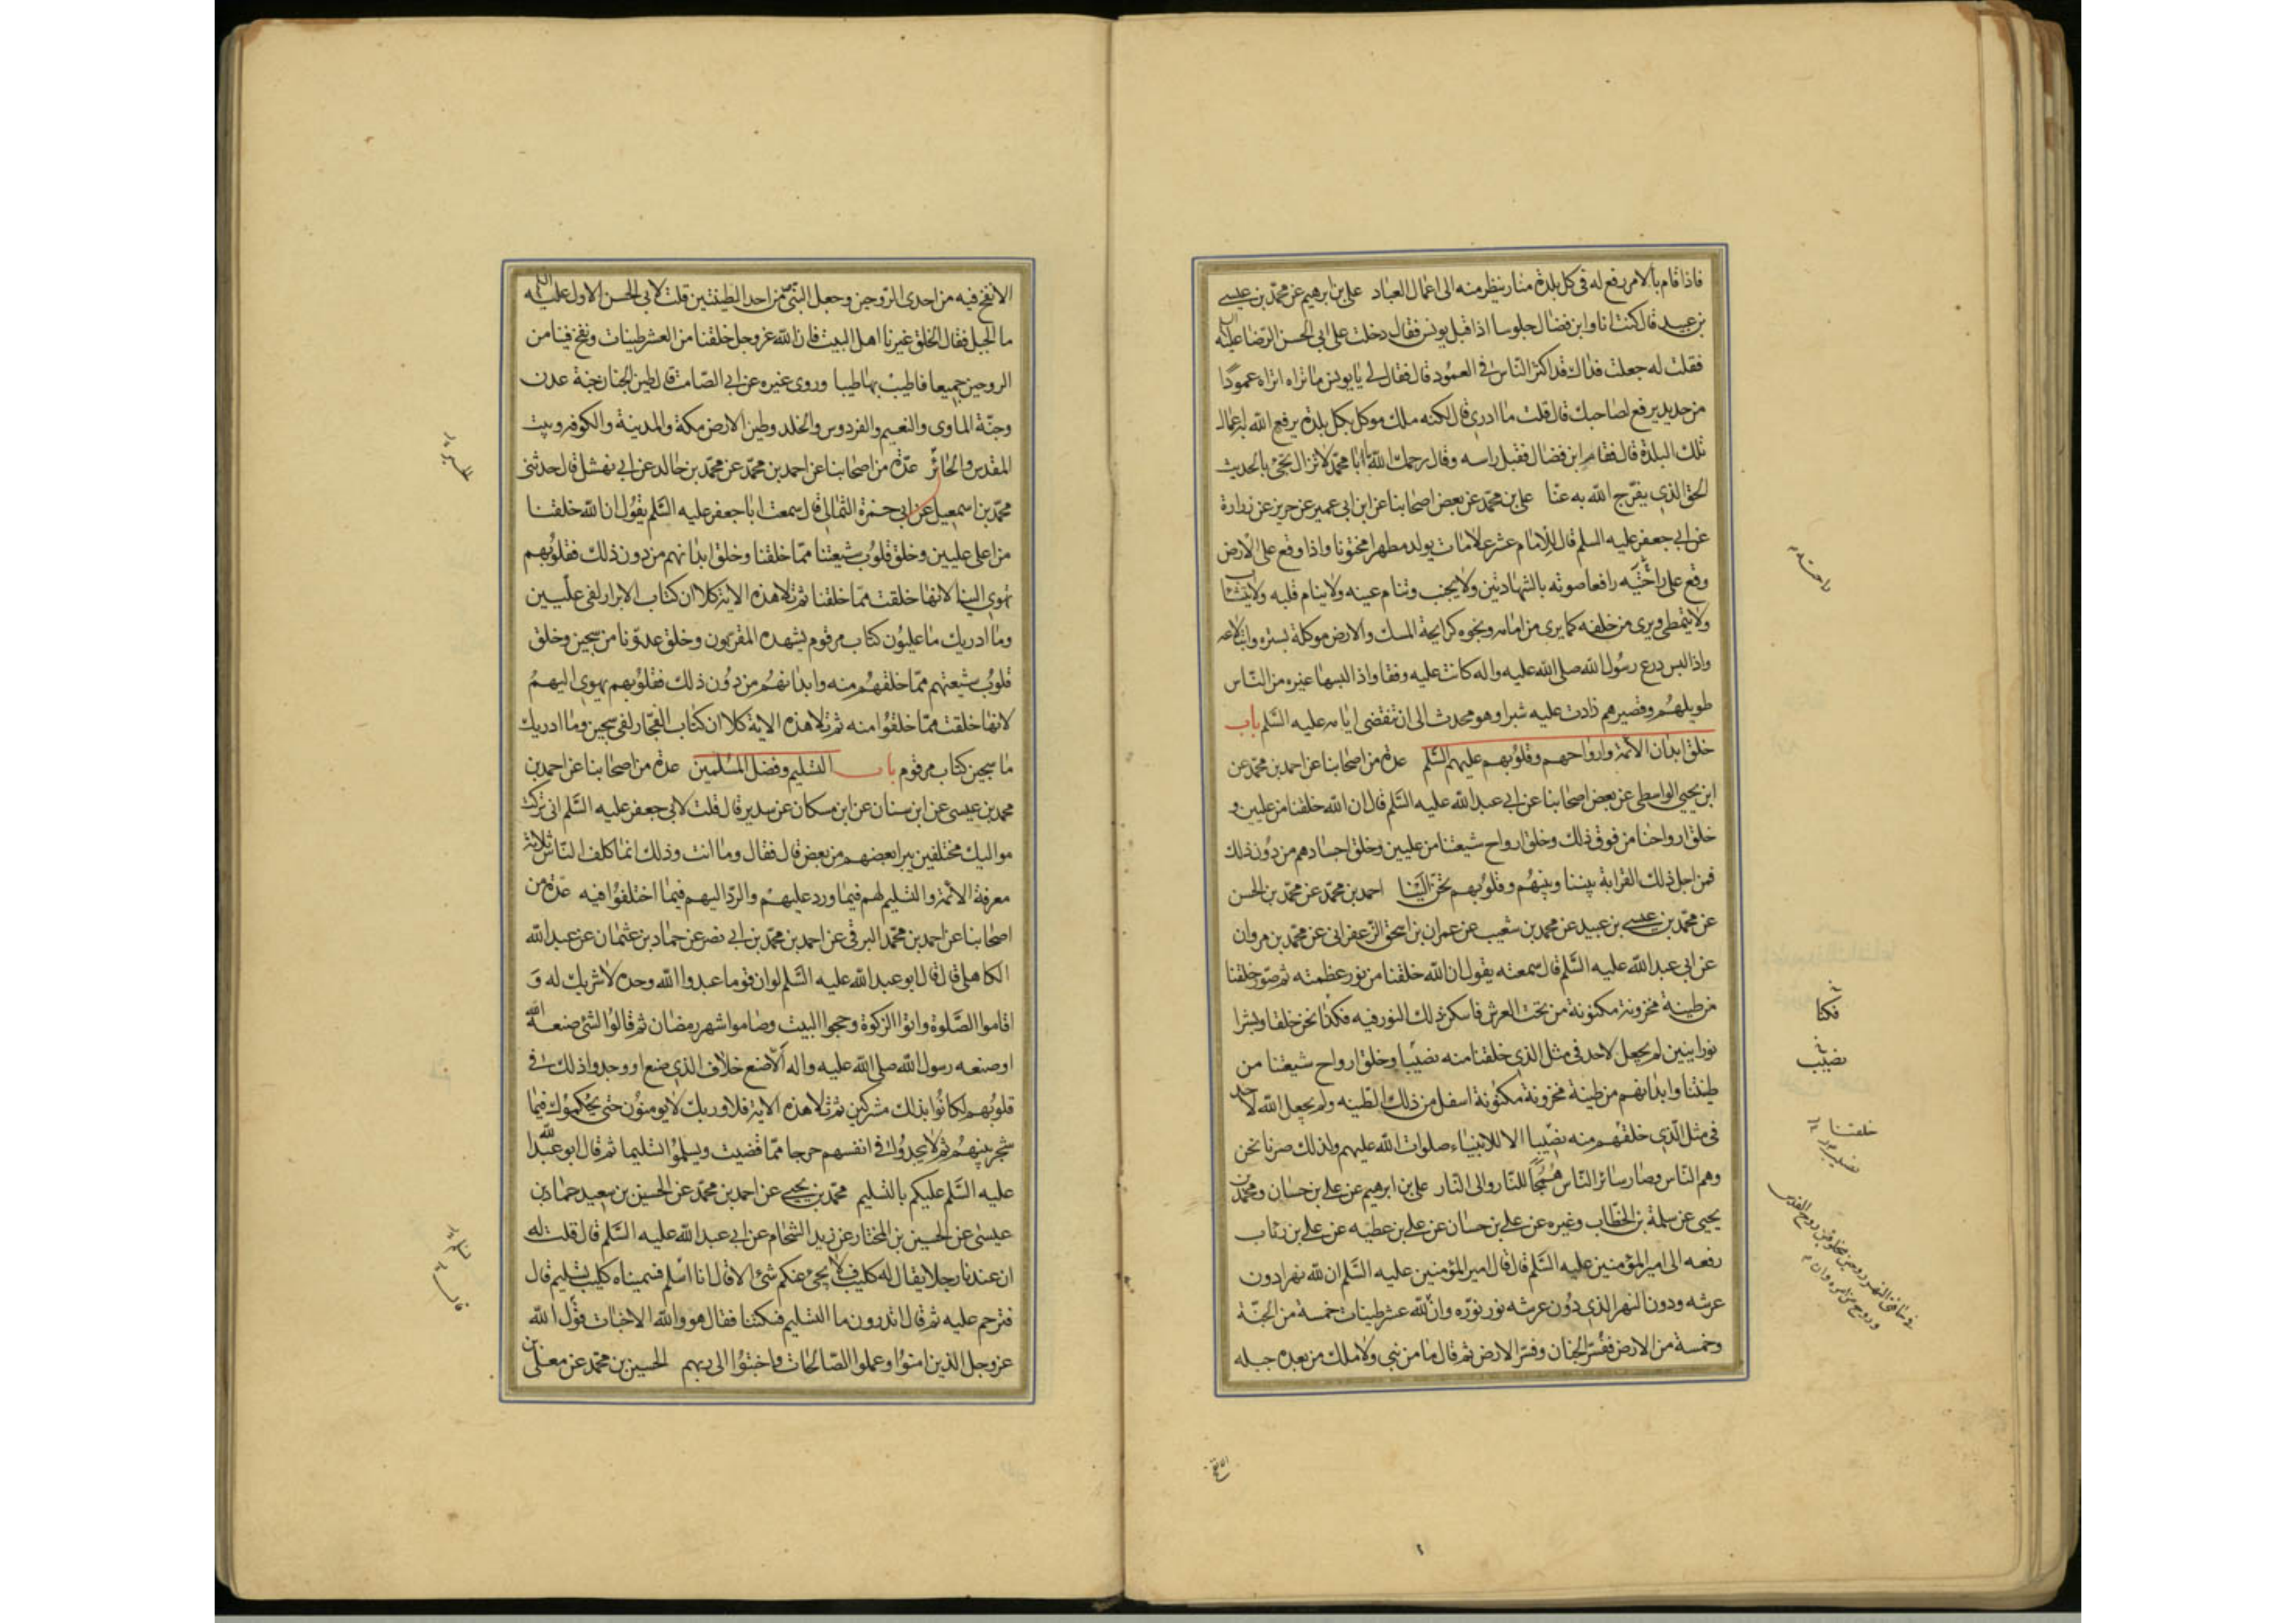 فاذا قام بالامر رفع له فى كل بلدة منار ينظر منه الى اعمال العباد على بن ابرهيم عن محمد بن عيسى
بن عبيد قال كنت انا وابن فضال جلوسا اذا قبل يونس فقال دخلت على ابى الحسن الرضا عليه السلم
فقلت له جعلت فداك قد اكثر الناس فى العمود قال فقال لى يا يونس ما تراه اتراه عمودًا
من حديد يرفع لصاحبك قال قلت ما ادرى قال لكنه ملك موكل بكل بلدة يرفع الله به اعمال
تلك البلدة قال فقام ابن فضال فقبل راسه وقال رحمك الله يا ابا محمد لا تزال تجئ بالحديث
الحق الذى يفرج الله به عنا على بن محمد عن بعض اصحابنا عن ابن ابى عمير عن حريز عن زرارة
عن ابى جعفر عليه السلم قال للامام عشر علامات يولد مطهرا مختونا واذا وقع على الارض
وقع على راحته رافعا صوته بالشهادتين ولا يجنب وتنام عينه ولا ينام قلبه ولا يتثاب
ولا يتمطى ويرى من خلفه كما يرى من امامه ونجوه كرايحة المسك والارض موكلة بستره وابتلاعه
واذا لبس درع رسول الله صلى الله عليه واله كانت عليه وفقا واذا لبسها غيره من الناس
طويلهم وقصيرهم زادت عليه شبرا وهو محدث الى ان تنقضى ايامه عليه السلم باب
خلق ابدان الائمة وارواحهم وقلوبهم عليهم السلم عدة من اصحابنا عن احمد بن محمد عن
ابن يحيى الواسطى عن بعض اصحابنا عن ابى عبد الله عليه السلم قال ان الله خلقنا من عليين و
خلق ارواحنا من فوق ذلك وخلق ارواح شيعتنا من عليين وخلق اجسادهم من دون ذلك
فمن اجل ذلك القرابة بيننا وبينهم وقلوبهم تحن الينا احمد بن محمد عن محمد بن الحسن
عن محمد بن عيسى بن عبيد عن محمد بن شعيب عن عمران بن اسحق الزعفرانى عن محمد بن مروان
عن ابى عبد الله عليه السلم قال سمعته يقول ان الله خلقنا من نور عظمته ثم صور خلقنا
من طينة مخزونة مكنونة من تحت العرش فاسكن ذلك النور فيه فكنا نحن خلقا وبشرا
نورانيين لم يجعل لاحد فى مثل الذى خلقنا منه نصيبا وخلق ارواح شيعتنا من
طينتنا وابدانهم من طينة مخزونة مكنونة اسفل من ذلك الطينه ولم يجعل الله لاحد
فى مثل الذى خلقهم منه نصيبا الا للانبياء صلوات الله عليهم ولذلك صرنا نحن
وهم الناس وصار سائر الناس همجًا للنار والى النار على بن ابرهيم عن على بن حسان ومحمد بن
يحيى عن سلمة بن الخطاب وغيره عن على بن حسان عن على بن عطيه عن على بن رئاب
رفعه الى امير المؤمنين عليه السلم قال قال امير المؤمنين عليه السلم ان لله نهرا دون
عرشه ودون النهر الذى دون عرشه نور نوره وان لله عشر طينات خمسة من الجنة
وخمسة من الارض ففسر الجنان وفسر الارض ثم قال ما من نبى ولا ملك من بعده جبله
راحته
فكنا
نصيب
خلقنا
الا نفخ
الا نفخ فيه من احدى الروحين وجعل النبى من احد الطينتين قلت لابى الحسن الاول عليه السلم
ما الجبل فقال الخلق غيرنا اهل البيت فان الله عز وجل خلقنا من العشر طينات ونفخ فينا من
الروحين جميعا فاطيب بها طيبا وروى غيره عن ابى الصامت قال طين الجنان جنة عدن
وجنة الماوى والنعيم والفردوس والخلد وطين الارض مكة والمدينة والكوفه وبيت
المقدس والحائر عدة من اصحابنا عن احمد بن محمد عن محمد بن خالد عن ابى نهشل قال حدثنى
محمد بن اسمعيل عن ابى حمزة الثمالى قال سمعت ابا جعفر عليه السلم يقول ان الله خلقنا
من اعلى عليين وخلق قلوب شيعتنا مما خلقنا وخلق ابدانهم من دون ذلك فقلوبهم
تهوى الينا لانها خلقت مما خلقنا ثم تلا هذه الاية كلا ان كتاب الابرار لفى عليين
وما ادريك ما عليون كتاب مرقوم يشهده المقربون وخلق عدونا من سجين وخلق
قلوب شيعتهم مما خلقهم منه وابدانهم من دون ذلك فقلوبهم يهوى اليهم
لانها خلقت مما خلقوا منه ثم تلا هذه الاية كلا ان كتاب الفجار لفى سجين وما ادريك
ما سجين كتاب مرقوم باب التسليم وفضل المسلمين عدة من اصحابنا عن احمد بن
محمد بن عيسى عن ابن سنان عن ابن مسكان عن سدير قال قلت لابى جعفر عليه السلم انى تركت
مواليك مختلفين يبرا بعضهم من بعض قال فقال وما انت وذلك انما كلف الناس ثلاثة
معرفة الائمة والتسليم لهم فيما ورد عليهم والرد اليهم فيما اختلفوا فيه عدة من
اصحابنا عن احمد بن محمد البرقى عن احمد بن محمد بن ابى نصر عن حماد بن عثمان عن عبد الله
الكاهلى قال قال ابو عبد الله عليه السلم لو ان قوما عبدوا الله وحده لا شريك له و
اقاموا الصلوة واتوا الزكوة وحجوا البيت وصاموا شهر رمضان ثم قالوا الشئ صنعه الله
او صنعه رسول الله صلى الله عليه واله الا صنع خلاف الذى صنع او وجدوا ذلك فى
قلوبهم لكانوا بذلك مشركين ثم تلا هذه الاية فلا وربك لا يومنون حتى يحكموك فيما
شجر بينهم ثم لا يجدوك فى انفسهم حرجا مما قضيت ويسلموا تسليما ثم قال ابو عبد الله
عليه السلم عليكم بالتسليم محمد بن يحيى عن احمد بن محمد عن الحسين بن سعيد حماد بن
عيسى عن الحسين بن المختار عن زيد الشحام عن ابى عبد الله عليه السلم قال قلت له
ان عندنا رجلا يقال له كليب فلا يجئ عنكم شئ الا قال انا اسلم فسميناه كليب تسليم قال
فترحم عليه ثم قال اتدرون ما التسليم فسكتنا فقال هو والله الاخبات قول الله
عز وجل الذين امنوا وعملوا الصالحات واخبتوا الى ربهم الحسين بن محمد عن معلى بن